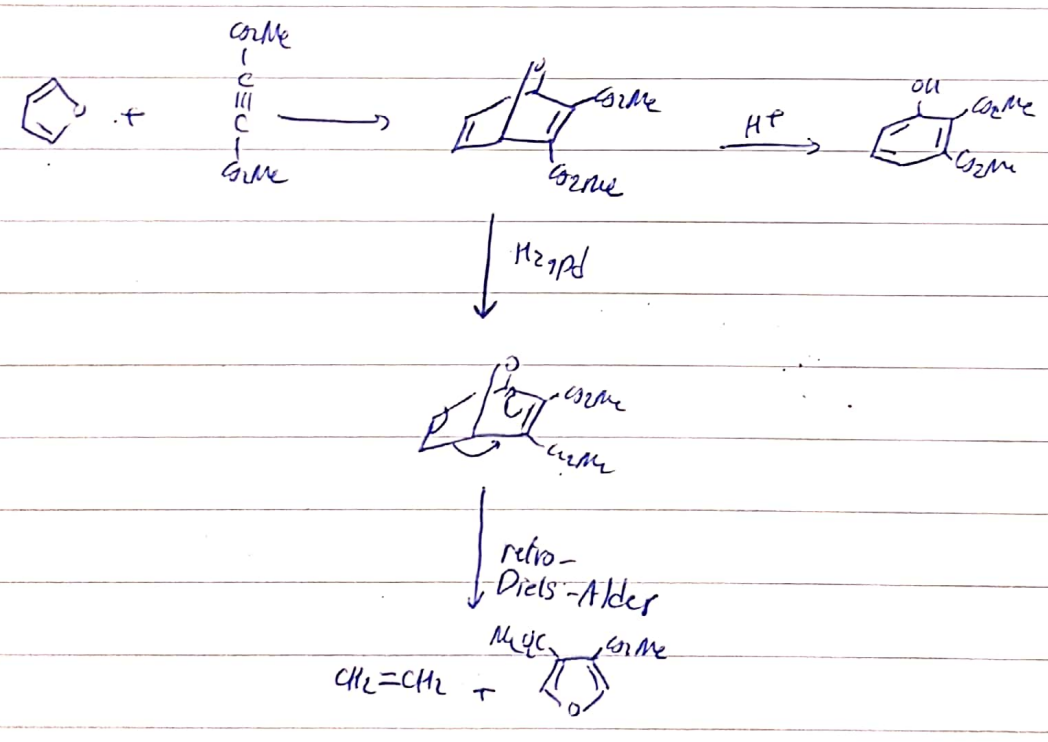 CO2Me
C
C
CO2Me
+
O
CO2Me
CO2Me
H+
OH
CO2Me
CO2Me
H2, Pd
O
CO2Me
CO2Me
retro-
Diels-Alder
CH2=CH2 +
MeO2C
CO2Me
O